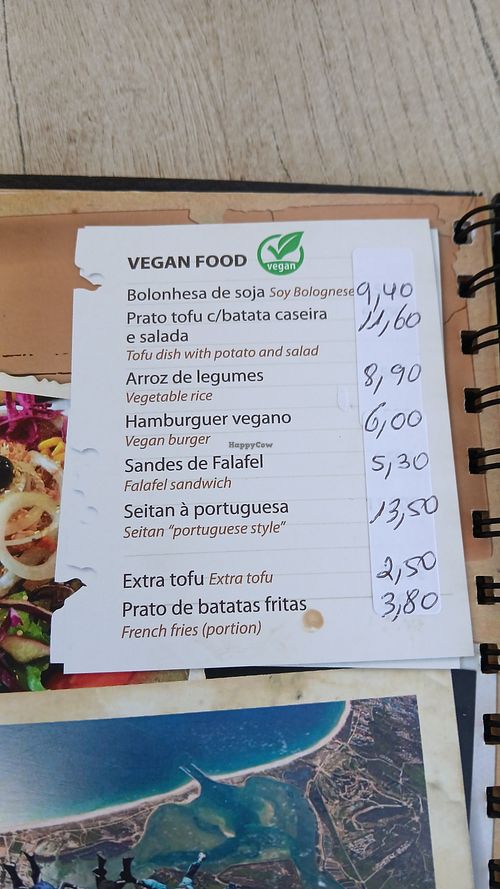 VEGAN FOOD vegan
Bolonhesa de soja Soy Bolognese 9,40
Prato tofu c/batata caseira 11,60
e salada
Tofu dish with potato and salad
Arroz de legumes 8,90
Vegetable rice
Hamburguer vegano 6,00
Vegan burger
HappyCow
Sandes de Falafel 5,30
Falafel sandwich
Seitan à portuguesa 13,50
Seitan "portuguese style"
Extra tofu Extra tofu 2,50
Prato de batatas fritas 3,80
French fries (portion)